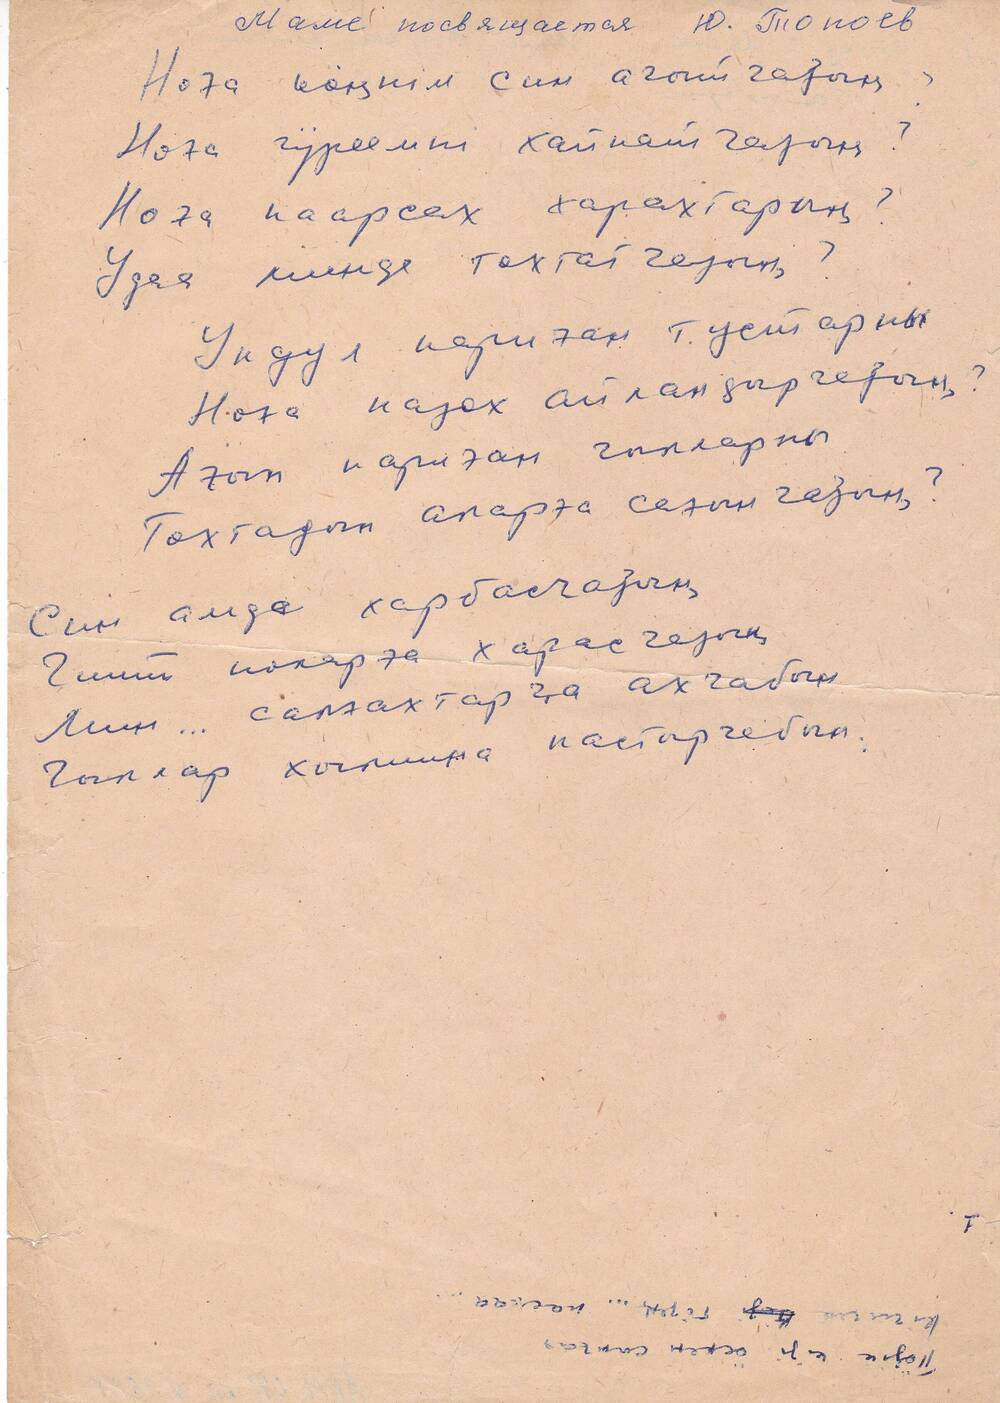 Маме посвящается Ю. Топоев
Ноға кӧңнім син ағытчазың?
Ноға чӱреемні хайнатчазың?
Ноға паарсах харахтарың?
Удаа минде тохтатчазың?
Ундул парған тустарны
Ноға пазох айландырчазың?
Ағын парған чылларны
Тохтадып аларға сағынчазың?
Син амда харбасчазың
Чиит поларға харасчазың
Мин... салғахтарҷа ахчабын
Чыллар хылиина пастырчабын.
т